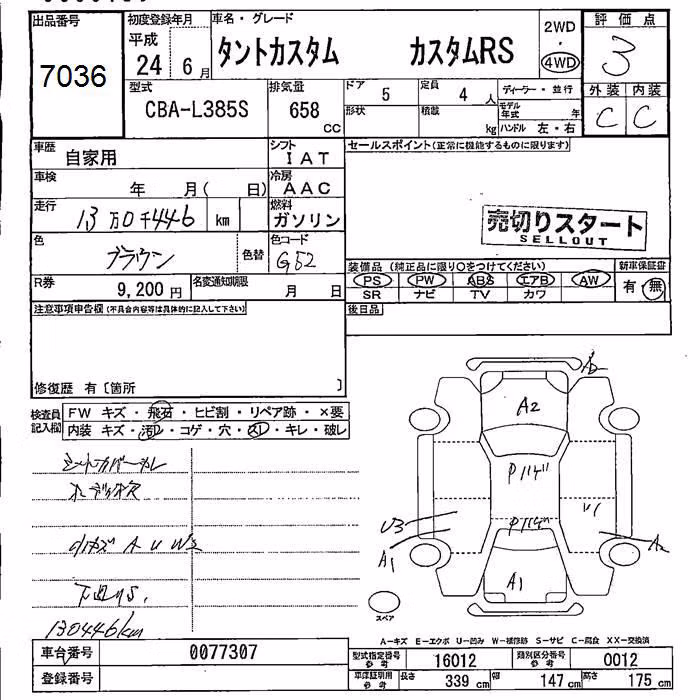 出品番号
7036
初度登録年月
平成
24 6月
車名・グレード
タントカスタム カスタムRS
2WD
・
4WD
評価点
3
外装 内装
C C
型式
CBA-L385S
排気量
658
cc
ドア 5
定員 4人
ディーラー・並行
形状
積載
kg
モデル
年式 年
ハンドル 左・右
車歴
自家用
シフト
IAT
車検
年 月( 日)
冷房
AAC
走行
13万0千446 km
燃料
ガソリン
色
ブラウン
色替
色コード
G52
R券
9,200円
名変通知期限
月 日
セールスポイント(正常に機能するものに限ります)
売切りスタート
SELLOUT
装備品(純正品に限り○をつけてください)
PS PW ABS エアB AW
SR ナビ TV カワ
新車保証書
有・無
注意事項申告欄(不具合内容等は具体的に記入して下さい)
後日品
修復歴 有〔箇所 〕
検査員
記入欄
FW キズ・飛石・ヒビ割・リペア跡・×要
内装 キズ・汚レ・コゲ・穴・スレ・キレ・破レ
シートカバースレ
オーディオ欠
小キズ A U W2
下廻りS,
130446km
A2
A2
P
P
U3
A1
A2
A1
スペア
A-キズ E-エクボ U-凹み W-補修跡 S-サビ C-腐食 XX-交換済
車台番号
0077307
登録番号
型式指定番号
参考
16012
類別区分番号
参考
0012
車庫証明用
参考
長さ 339cm
幅 147cm
高さ 175cm